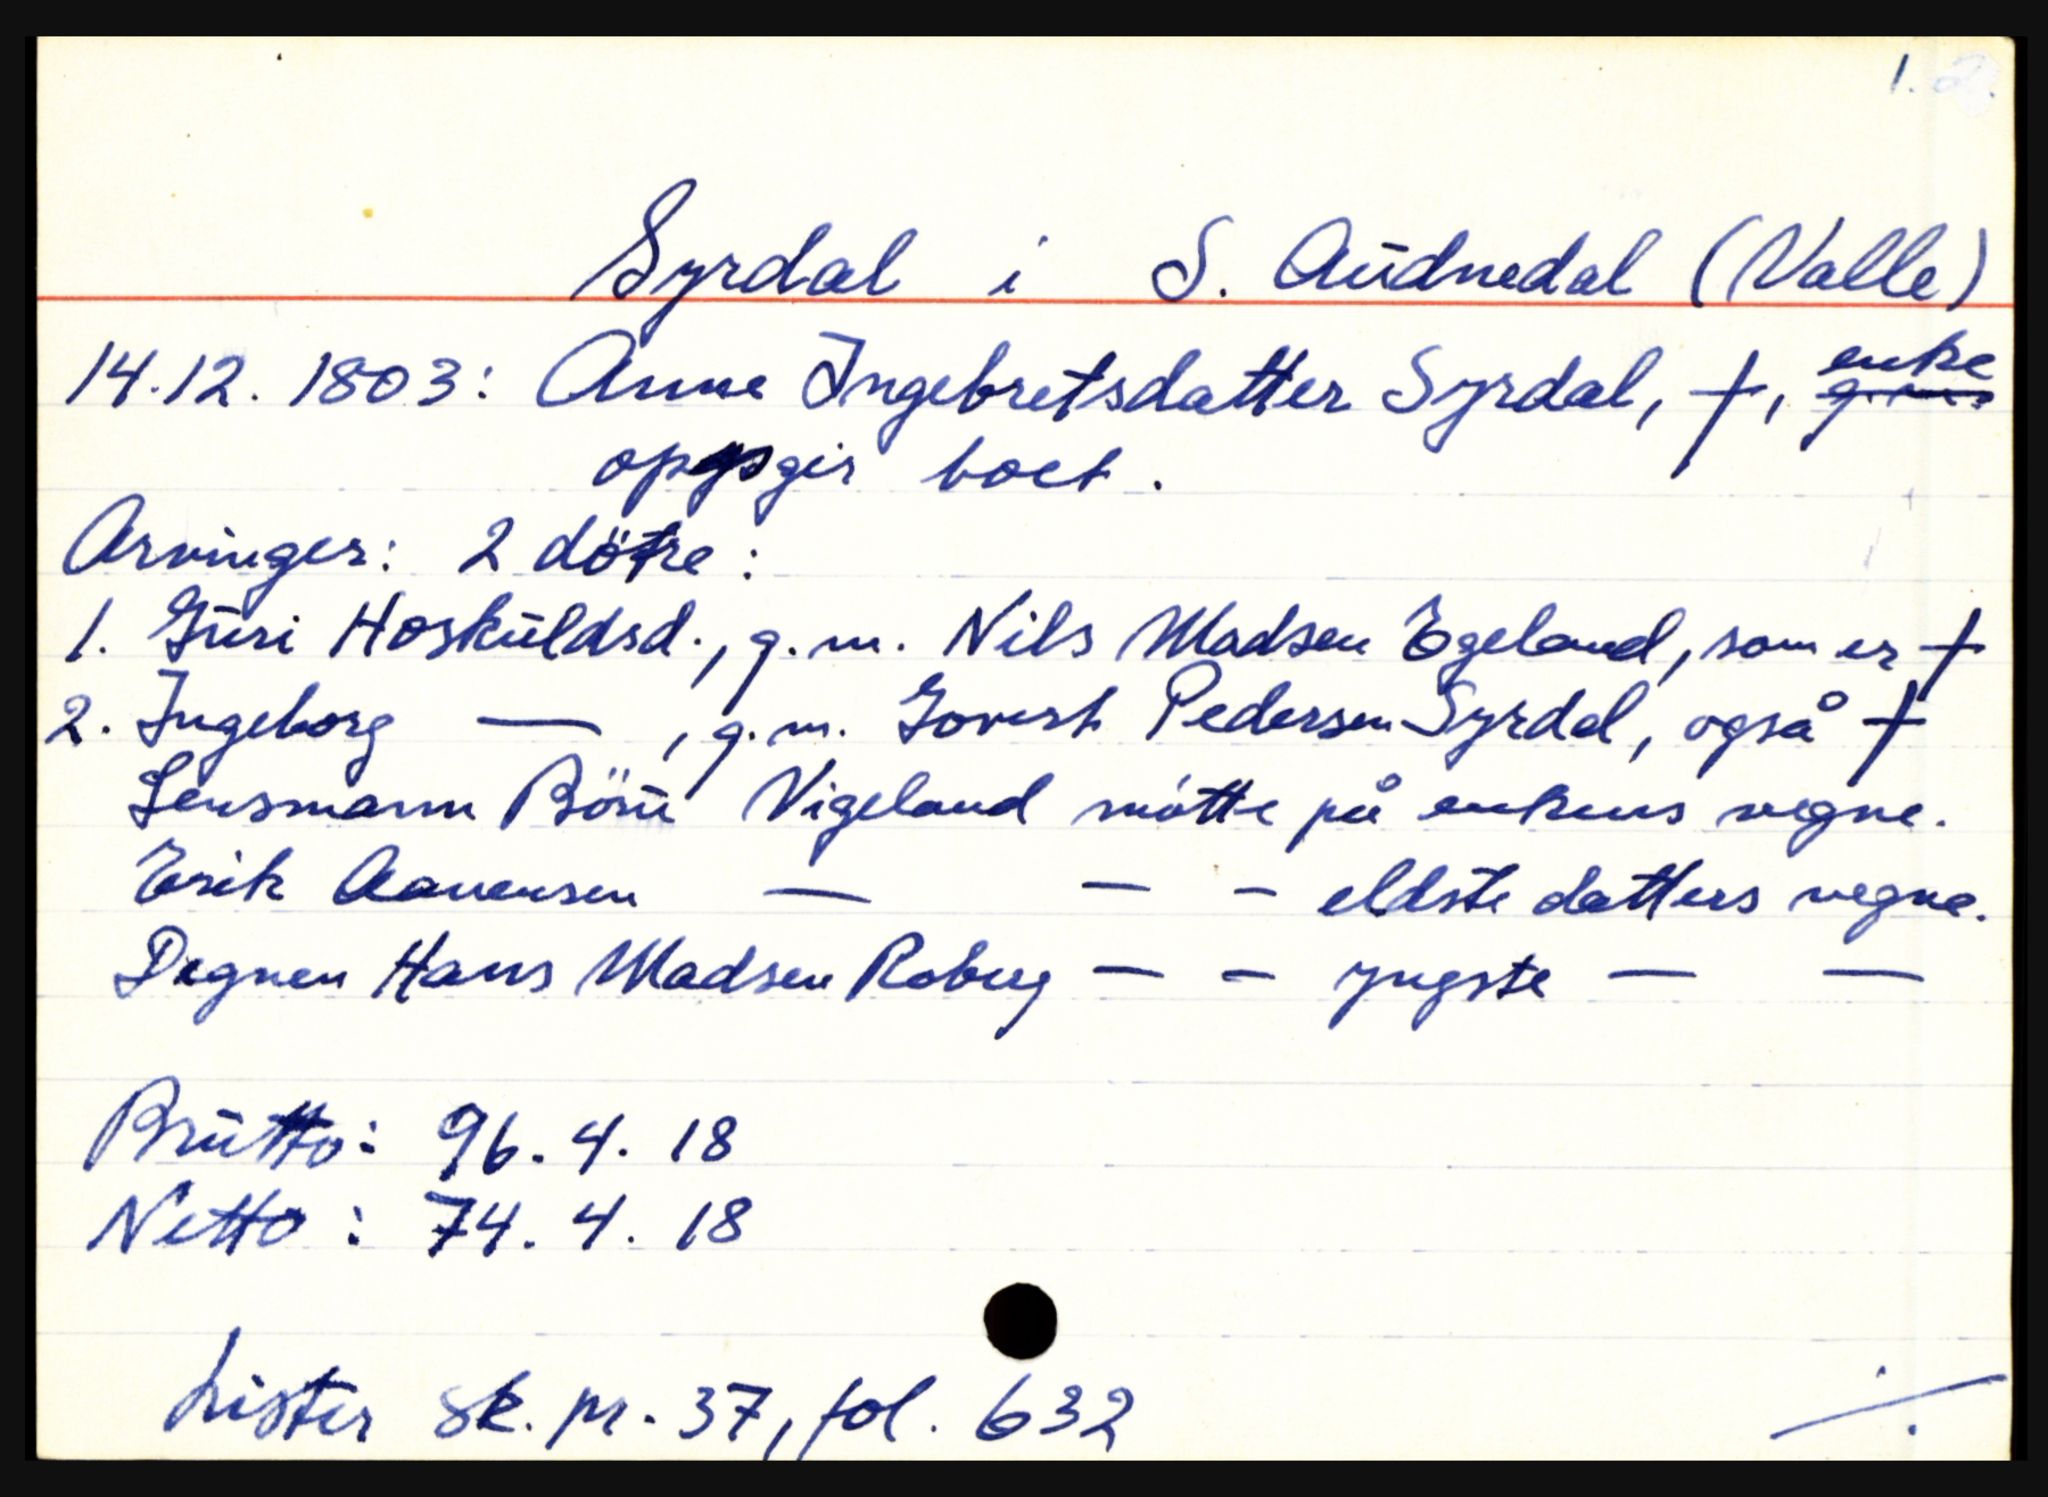 1. 2.
Syrdal i S. Audnedal (Valle)
14.12. 1803: Anne Ingebretsdatter Syrdal, †, enke
oppgir boet.
Arvinger: 2 døtre:
1. Guri Hoskuldsd., g.m. Nils Madsen Egeland, som er †
2. Ingeborg — , g.m. Govert Pedersen Syrdal, også †
Lensmann Bönu Vigeland møtte på enkens vegne.
Erik Aanensen — — – eldste datters vegne.
Degnen Hans Madsen Roberg — – yngste — —
Brutto: 96. 4. 18
Netto: 74. 4. 18
Lister sk. pr. 37, fol. 632
./.